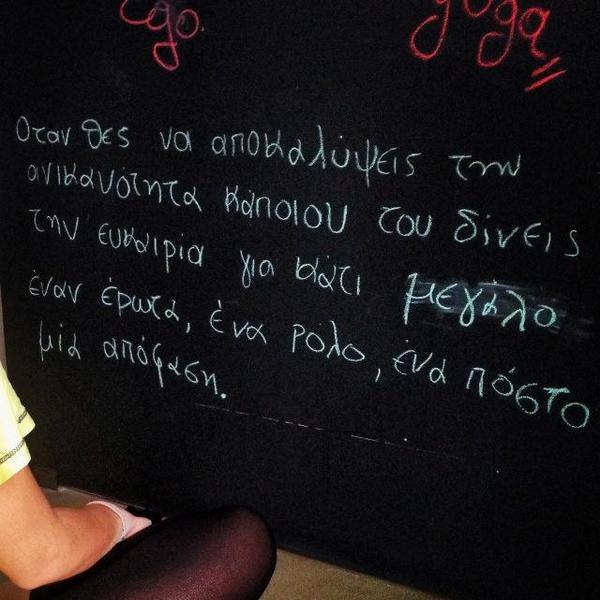 ego. yoga
Οταν θες να αποκαλύψεις την
ανικανότητα κάποιου του δίνεις
την ευκαιρία για κάτι μεγάλο
έναν έρωτα, ένα ρολο, ένα πόστο
μία απόφαση.